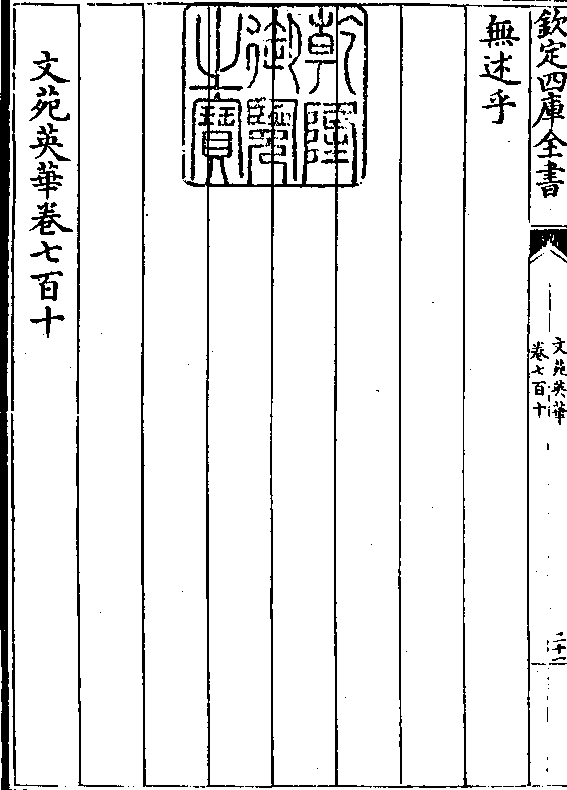 欽定四庫全書
文苑英華
卷七百十
二十一
無述乎
乾隆御覽之寶
文苑英華卷七百十